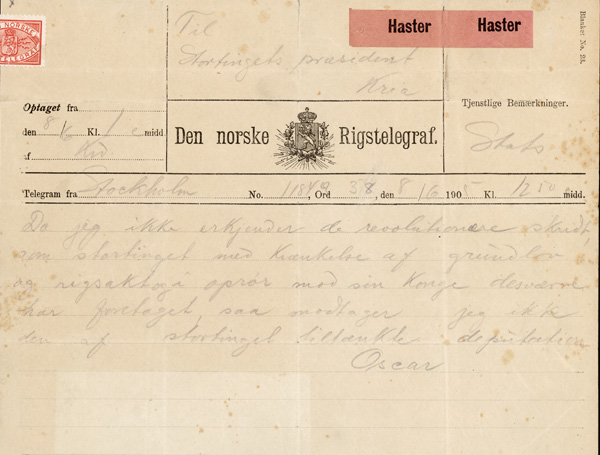 Haster Haster
Blanket No. 23.
Til
Stortingets præsident
Kria
Optaget fra
den 8/6 Kl. 1 e midd.
af
Den norske Rigstelegraf.
Tjenstlige Bemærkninger.
Stats
Telegram fra Stockholm No. , Ord 38, den 8/6 1905 Kl. 12 50 midd.
Da jeg ikke erkjender de revolutionære skridt,
som stortinget med krænkelse af grundlov
og rigsakt og i oprør mod sin Konge desværre
har foretaget, saa modtager jeg ikke
den af stortinget tiltænkte deputation
Oscar